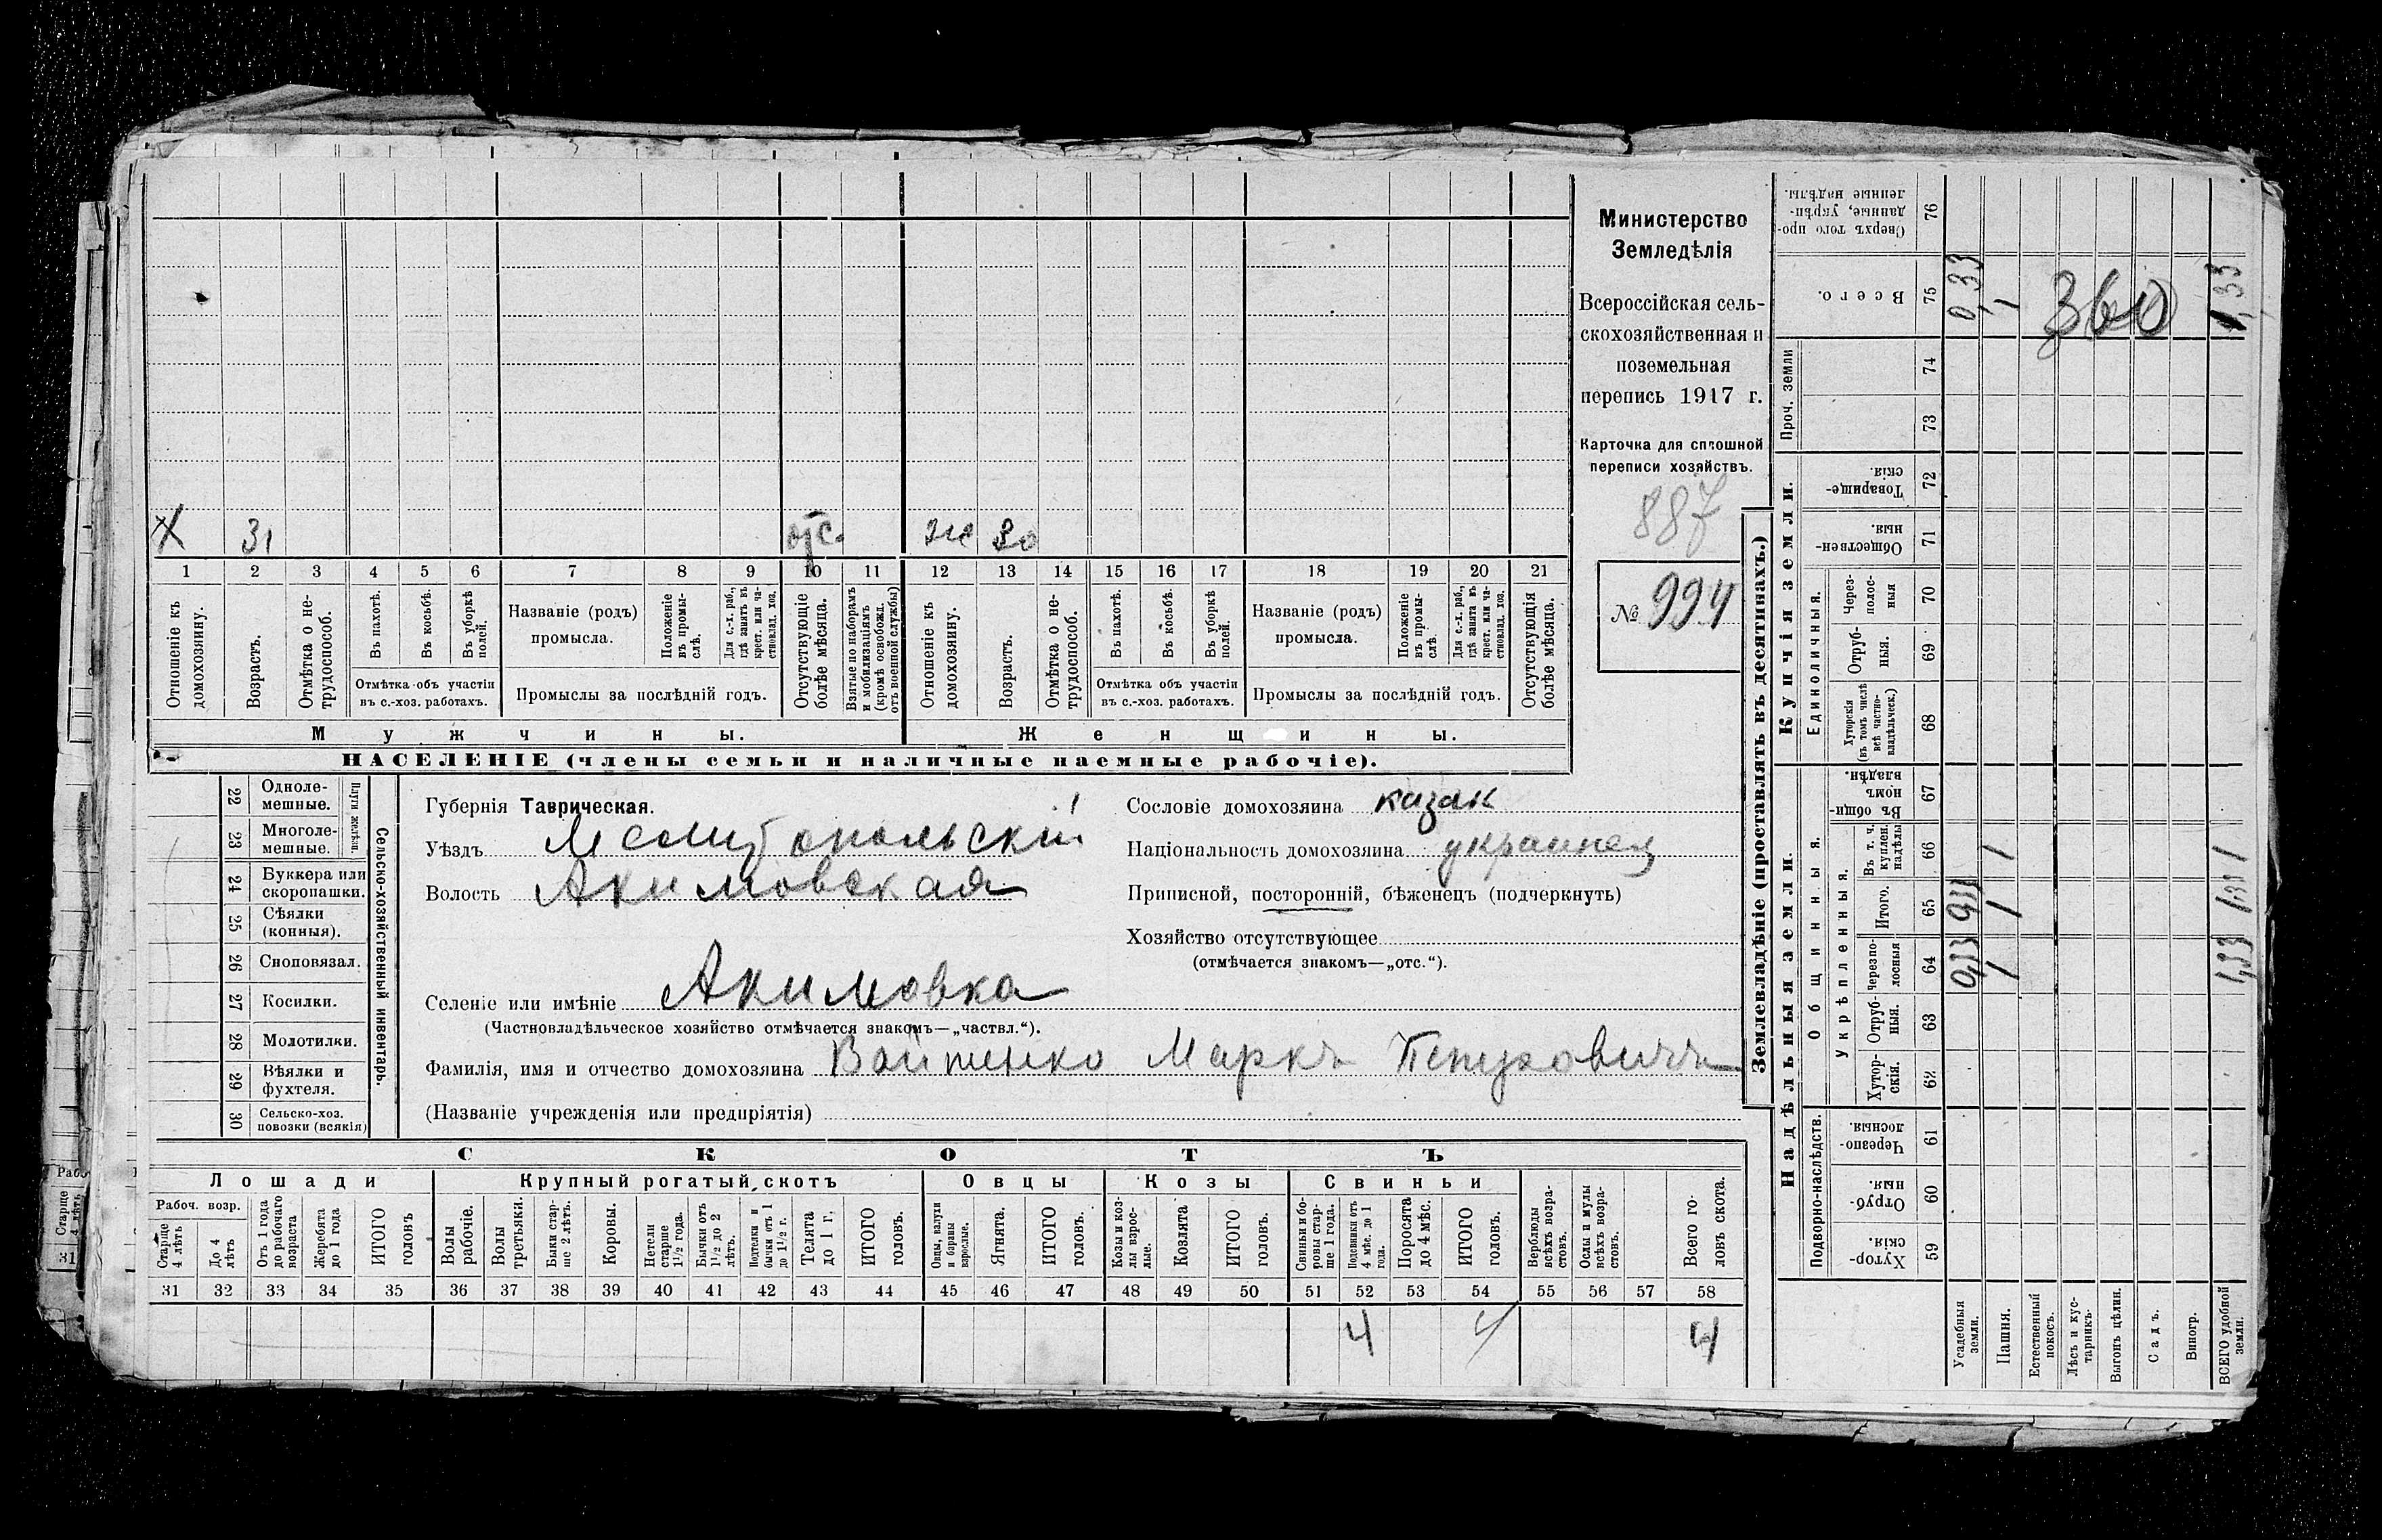 Х 31 отс. же 30
1 2 3 4 5 6 7 8 9 10 11 12 13 14 15 16 17 18 19 20 21
Отношеніе къ домохозяину.
Возрастъ.
Отмѣтка о не-трудоспособ.
Въ пахотѣ.
Въ косьбѣ.
Въ уборкѣ полей.
Отмѣтка объ участіи
въ с.-хоз. работахъ.
Названіе (родъ)
промысла.
Положеніе въ промы-слѣ.
Для с.-х. раб., гдѣ занятъ въ крест. или ча-стновлад. хоз.
Промыслы за послѣдній годъ.
Отсутствующіе болѣе мѣсяца.
Взятые по наборамъ и мобилизаціямъ (кромѣ освобожд. отъ военной службы)
Отношеніе къ домохозяину.
Возрастъ.
Отмѣтка о не-трудоспособ.
Въ пахотѣ.
Въ косьбѣ.
Въ уборкѣ полей.
Отмѣтка объ участіи
въ с.-хоз. работахъ.
Названіе (родъ)
промысла.
Положеніе въ промы-слѣ.
Для с.-х. раб., гдѣ занята въ крест. или ча-стновлад. хоз.
Промыслы за послѣдній годъ.
Отсутствующія болѣе мѣсяца.
Мужчины. Женщины.
НАСЕЛЕНІЕ (члены семьи и наличные наемные рабочіе).
Министерство
Земледѣлія
Всероссійская сель-
скохозяйственная и
поземельная
перепись 1917 г.
Карточка для сплошной
переписи хозяйствъ.
887
№ 994
22 Одноле-мешные.
23 Многоле-мешные.
Плуги желѣзн.
24 Буккера или скоропашки.
25 Сѣялки (конныя).
26 Сноповязал.
27 Косилки.
28 Молотилки.
29 Вѣялки и фухтеля.
30 Сельско-хоз. повозки (всякія)
Сельско-хозяйственный инвентарь.
Губернія Таврическая.
Уѣздъ Мелитопольскій
Волость Акимовская
Селеніе или имѣніе Акимовка
(Частновладѣльческое хозяйство отмѣчается знакомъ—„частвл.“).
Фамилія, имя и отчество домохозяина Войтенко Маркъ Петровичъ
(Названіе учрежденія или предпріятія)
Сословіе домохозяина казак
Національность домохозяина украинец
Приписной, посторонній, бѣженецъ (подчеркнуть)
Хозяйство отсутствующее
(отмѣчается знакомъ—„отс.“).
СКОТЪ
Лошади Крупный рогатый скотъ Овцы Козы Свиньи
Рабоч. возр.
Старше 4 лѣтъ
До 4 лѣтъ
Отъ 1 года до рабочаго возраста
Жеребята до 1 года
ИТОГО головъ
Волы рабочіе.
Волы третьяки.
Быки стар-ше 2 лѣтъ.
Коровы.
Нетели старше 1½ года.
Бычки отъ 1½ до 2 лѣтъ.
Подтелки и бычки отъ 1 до 1½ г.
Телята до 1 г.
ИТОГО головъ.
Овцы, валухи и бараны взрослые.
Ягнята.
ИТОГО головъ.
Козы и коз-лы взрос-лые.
Козлята
ИТОГО головъ.
Свиньи и бо-ровы стар-ше 1 года.
Подсвинки отъ 4 мѣс. до 1 года.
Поросята до 4 мѣс.
ИТОГО головъ.
Верблюды всѣхъ возра-стовъ.
Ослы и мулы всѣхъ возра-стовъ.
Всего го-ловъ скота.
31 32 33 34 35 36 37 38 39 40 41 42 43 44 45 46 47 48 49 50 51 52 53 54 55 56 57 58
4 4 4
Землевладѣніе (проставлять въ десятинахъ.)
Надѣльныя земли. Купчія земли. Проч. земли
Подворно-наслѣдств.
Общинныя.
Укрѣпленныя.
Единоличныя.
Хутор-скія. 59
Отруб-ныя. 60
Черезпо-лосныя. 61
Хутор-скія. 62
Отруб-ныя. 63
Черезпо-лосныя 64
Итого. 65
Въ т. ч. куплен. надѣлы 66
Въ общи-номъ владѣн. 67
Хуторскія (въ томъ числѣ всѣ частно-владѣльческ.) 68
Отруб-ныя. 69
Через-полос-ныя 70
Обществен-ныя. 71
Товарище-скія. 72
73
74
Всего. 75
Сверхъ того про-данные, укрѣп-ленные надѣлы. 76
Усадебныя земли. 0,33 0,33
Пашня. 1 1 1 1
Естественный покосъ.
Лѣсъ и кус-тарникъ.
Выгонъ цѣлин.
Садъ.
Виногр.
ВСЕГО удобной земли. 1,33 1,33 1 1,33
360